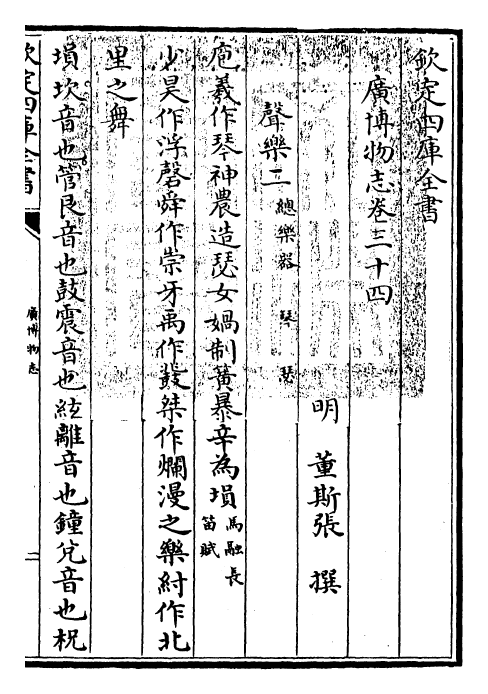 欽定四庫全書
廣博物志卷三十四
明 董斯張 撰
聲樂二總樂器 琴 瑟
庖羲作琴神農造瑟女媧制簧暴辛為塤馬融長笛賦
少昊作浮磬舜作崇牙禹作鼗桀作爛漫之樂紂作北
里之舞
塤坎音也管艮音也鼓震音也絃離音也鐘兌音也柷
欽定四庫全書
廣博物志